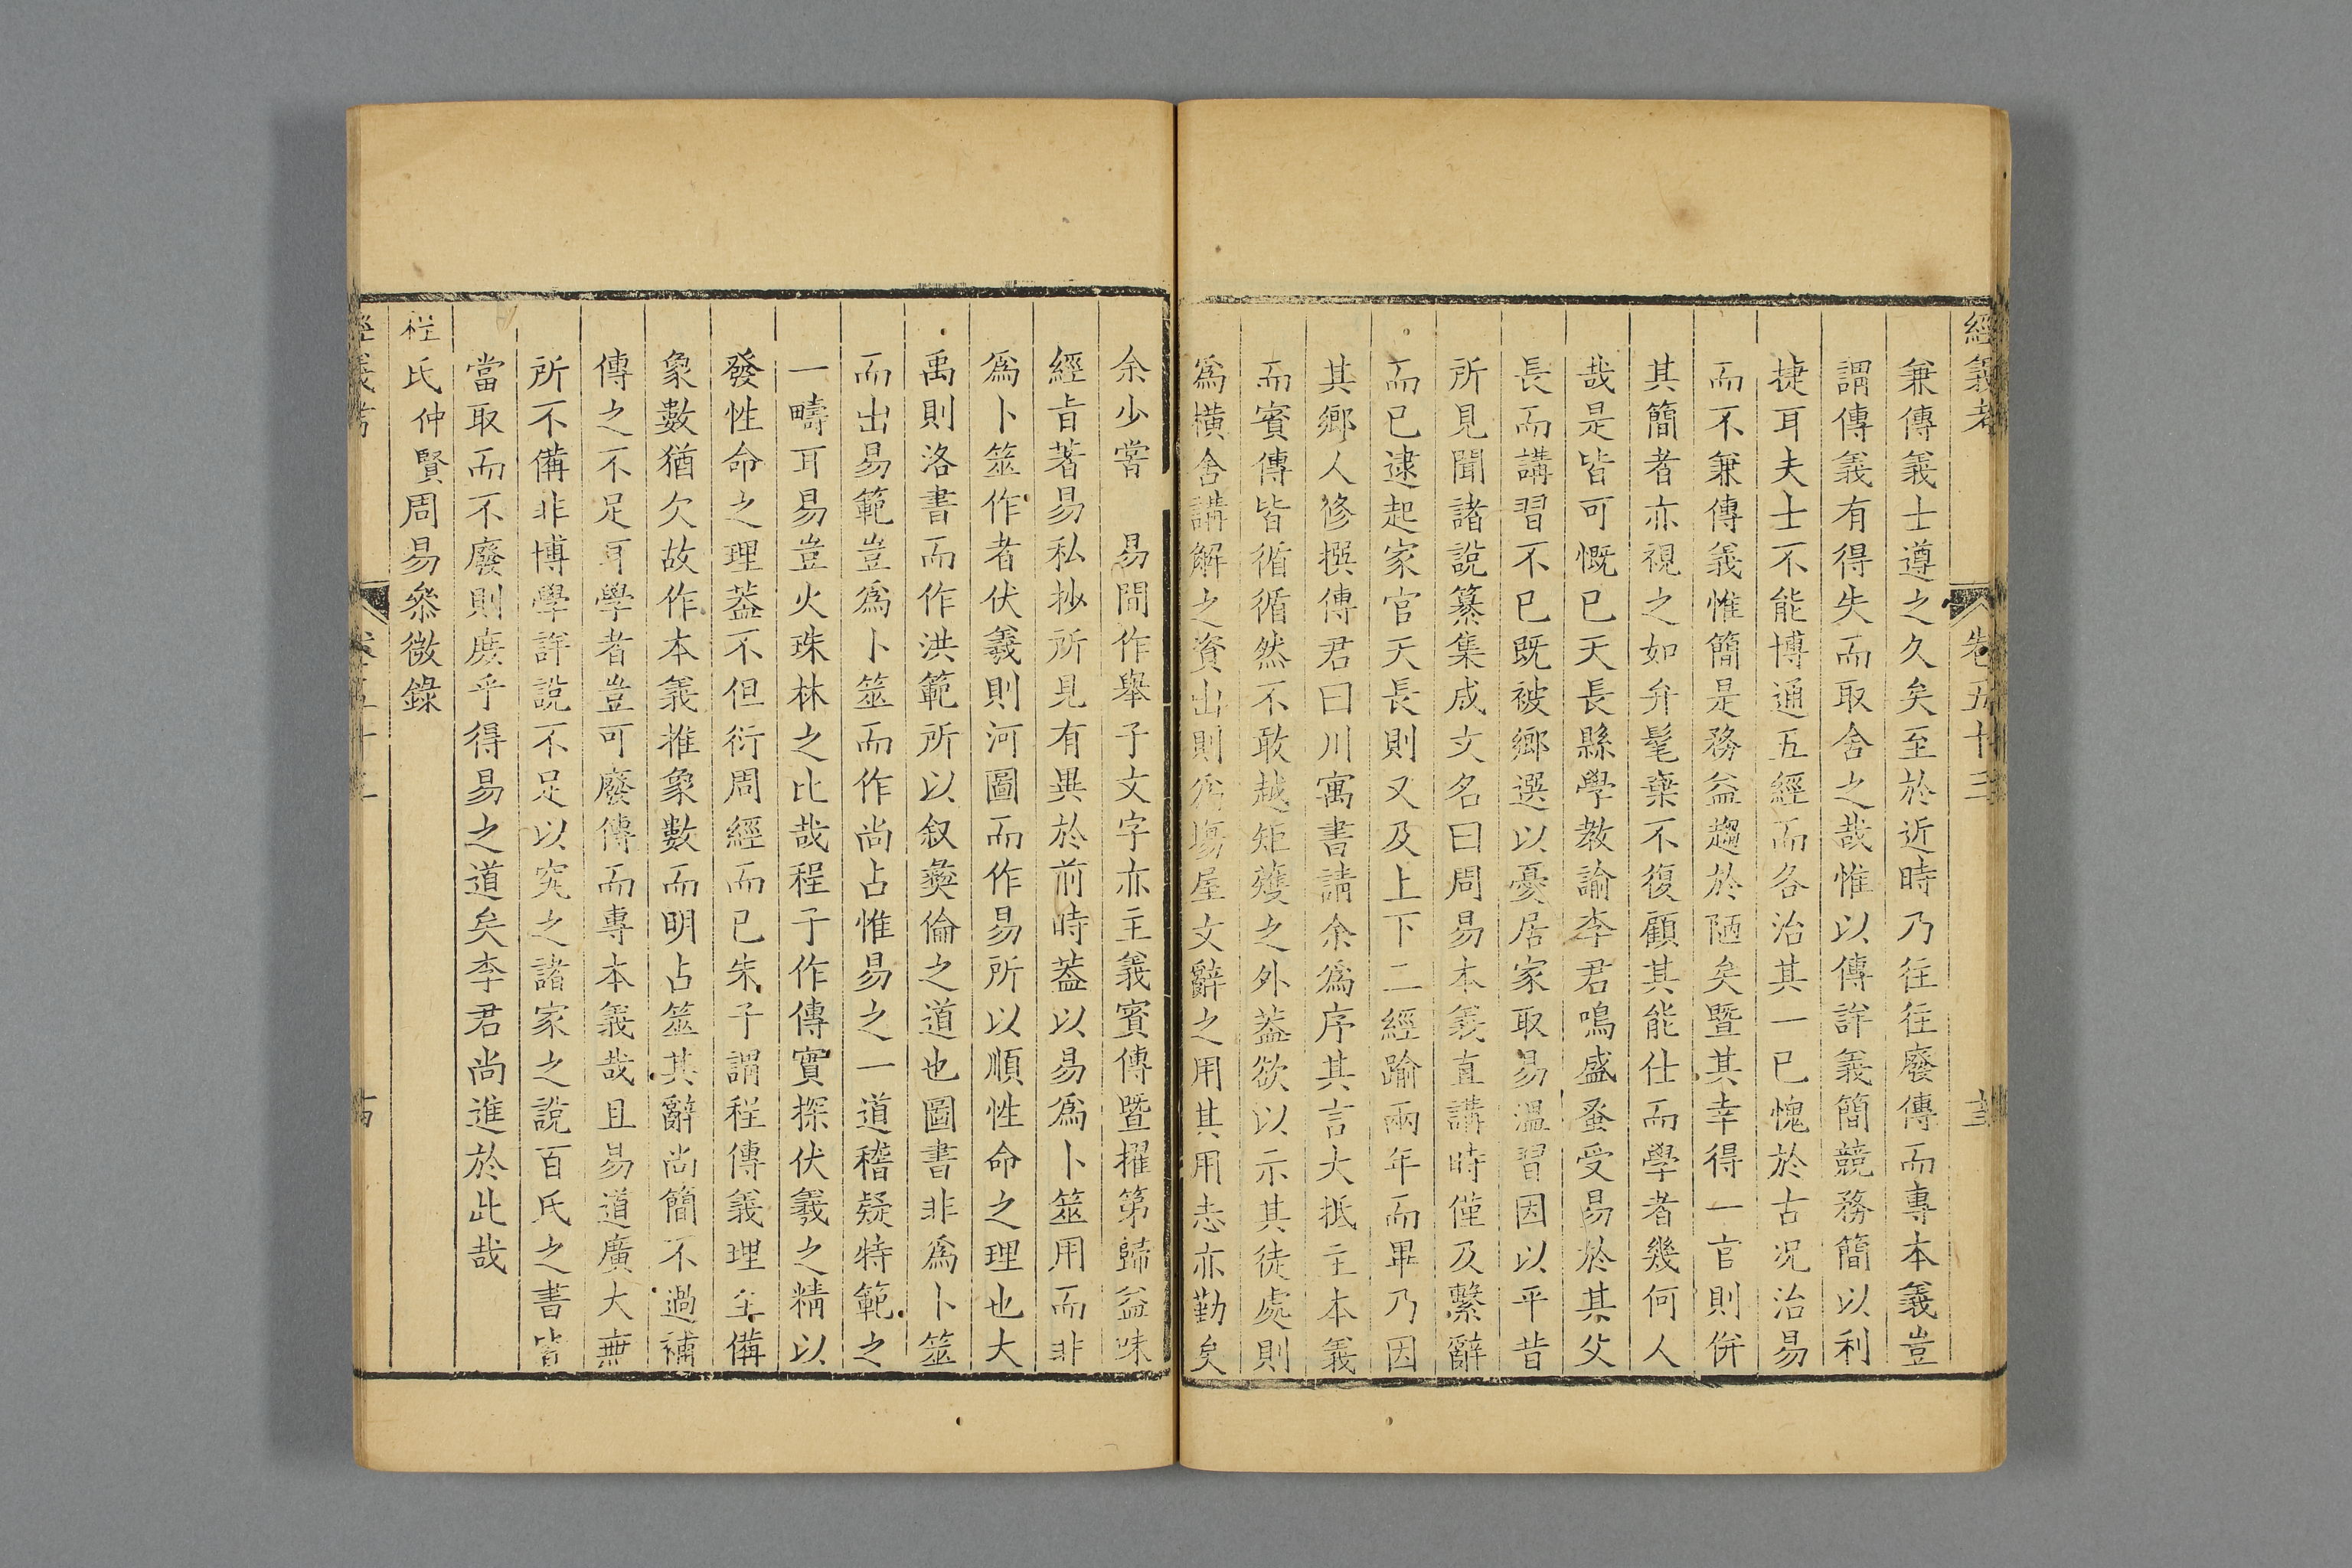 經義考 卷五十三
兼傳義士遵之久矣至於近時乃往往廢傳而專本義豈
謂傳義有得失而取舍之哉惟以傳詳義簡競務簡以利
捷耳夫士不能博通五經而各治其一已愧於古况治易
而不兼傳義惟簡是務益趨於陋矣暨其幸得一官則併
其簡者亦視之如弁髦棄不復顧其能仕而學者幾何人
哉是皆可慨已天長縣學教諭李君鳴盛蚤受易於其父
長而講習不已既被鄉選以憂居家取易溫習因以平昔
所見聞諸說纂集成文名曰周易本義直講時僅及繫辭
而已逮起家官天長則又及上下二經踰兩年而畢乃因
其鄉人修撰傳君曰川寓書請余爲序其言大抵主本義
而賓傳皆循循然不敢越矩矱之外葢欲以示其徒處則
爲横舍講解之資出則爲塲屋文辭之用其用志亦勤矣
余少嘗 易間作舉子文字亦主義賓傳暨擢第歸益味
經旨著易私抄所見有異於前時葢以易爲卜筮用而非
爲卜筮作者伏羲則河圖而作易所以順性命之理也大
禹則洛書而作洪範所以叙彝倫之道也圖書非爲卜筮
而出易範豈爲卜筮而作尚占惟易之一道稽疑特範之
一疇耳易豈火珠林之比哉程子作傳實探伏羲之精以
發性命之理葢不但衍周經而已朱子謂程傳義理全備
象數猶欠故作本義推象數而明占筮其辭尚簡不過補
傳之不足耳學者豈可廢傳而專本義哉且易道廣大無
所不備非博學詳說不足以究之諸家之說百氏之書皆
當取而不廢則庶乎得易之道矣李君尚進於此哉
程氏仲賢周易叅微錄
經義考